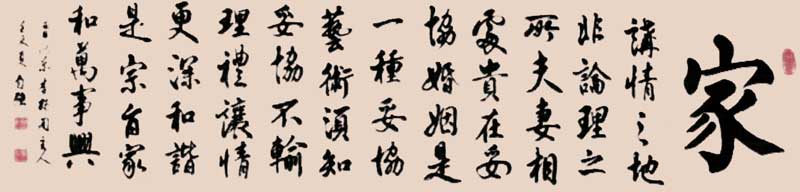 家
講情之地
非論理之
所夫妻相
處貴在妥
協婚姻是
一種妥協
藝術須知
妥協不輸
理禮讓情
更深和諧
是宗旨家
和萬事興